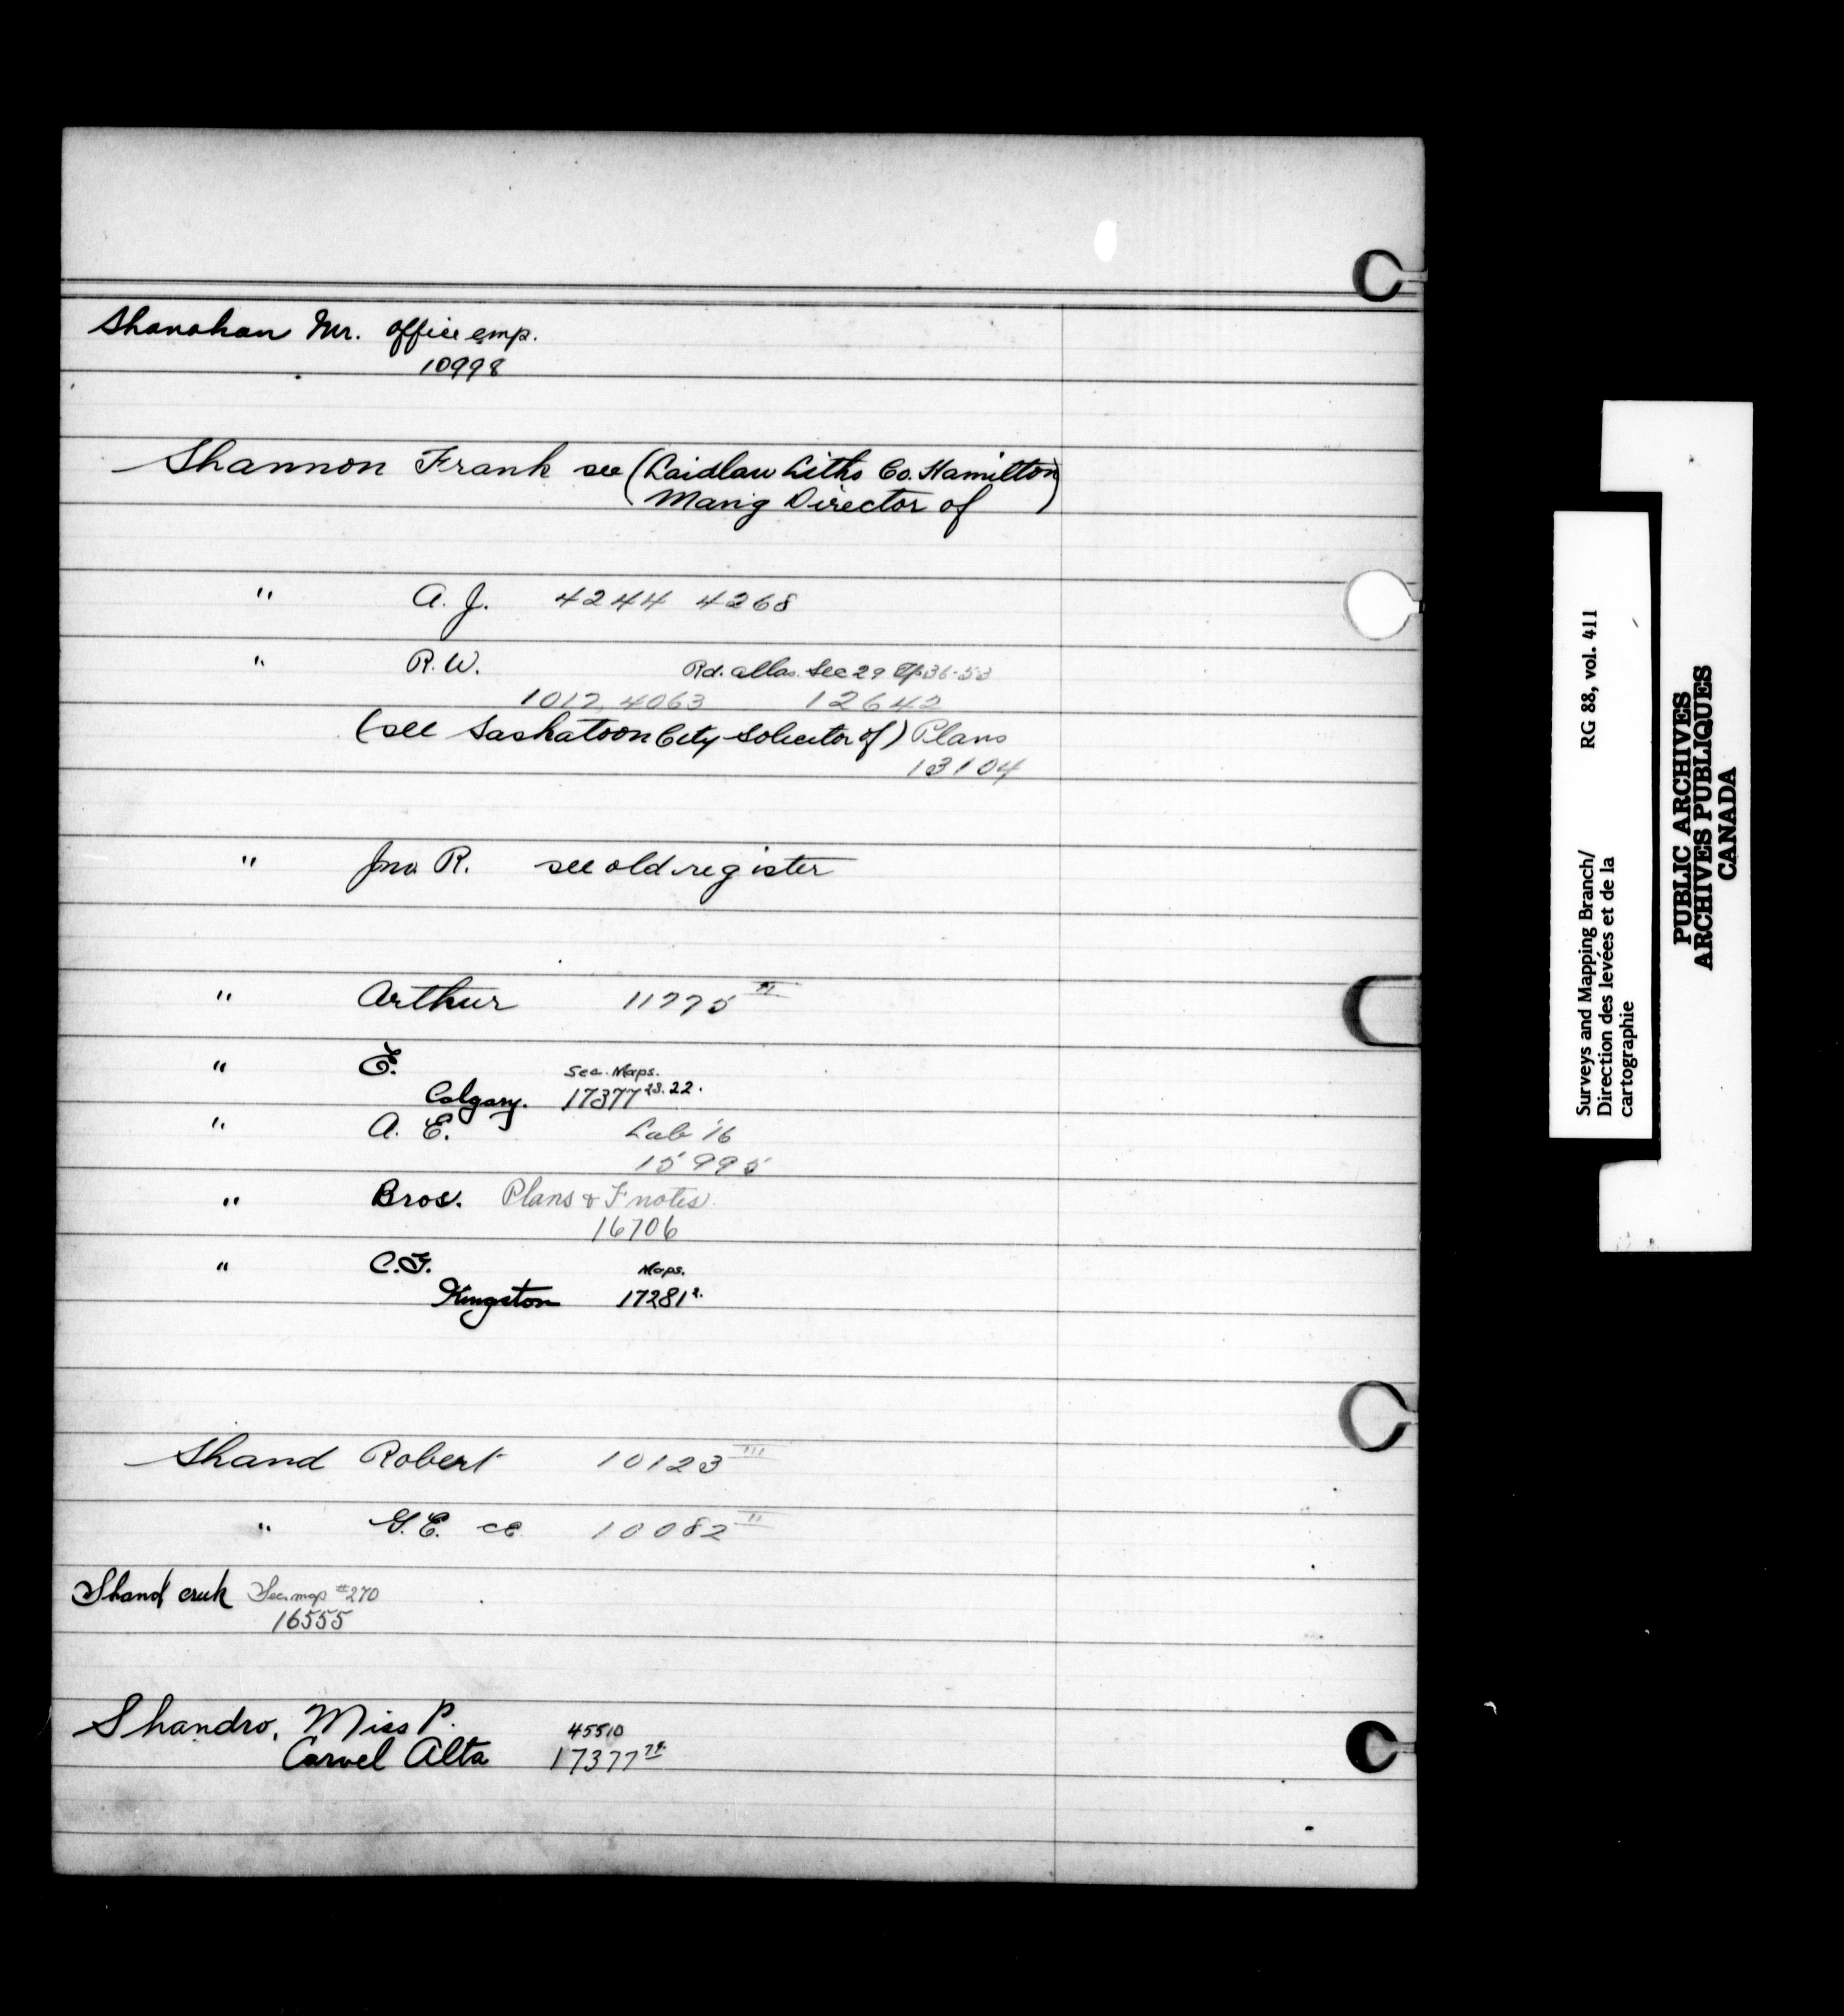 Shanahan Mr. Office emp.
10998
Shannon Frank see (Laidlaw Litho Co. Hamilton
Mang Director of )
" A. J. 4244 4268
" R. W. Rd. allow. Sec 29 Tp 36-53
1017, 4063 12642
(see Saskatoon City Solicitor of) Plans
13104
" Jno R. see old register
" Arthur 11775 II
" E. Sec. Maps.
Calgary. 17377 23.22.
" A. E. Lab '16
15995
" Bros. Plans & F notes.
16706
" C.F. Maps.
Kingston 17281 2.
Shand Robert 10123 III
" G. E. ce 10082 II
Shand creek Sec. map #270
16555
Shandro, Miss P. 45510
Carvel Alta 17377
Surveys and Mapping Branch/ RG 88, vol. 411
Direction des levées et de la
cartographie
PUBLIC ARCHIVES
ARCHIVES PUBLIQUES
CANADA